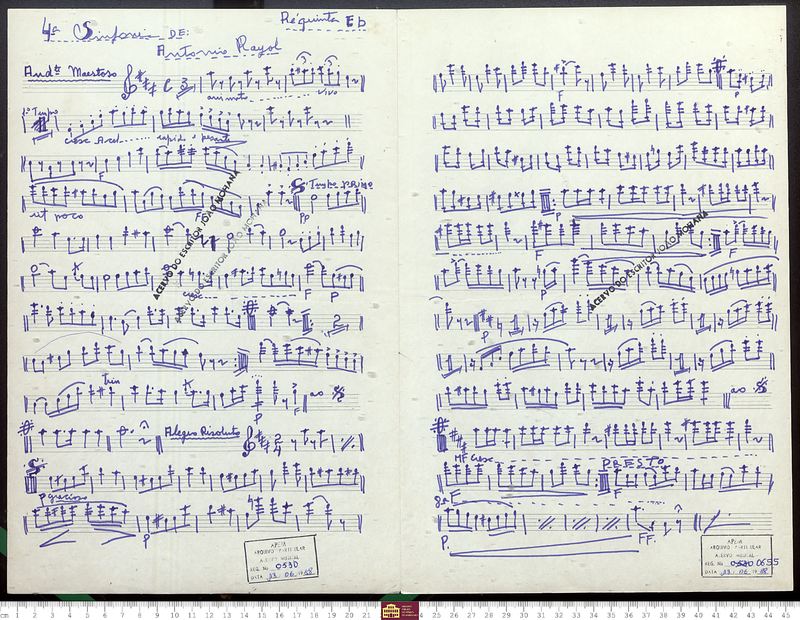 4ª Sinfonia DE:
Réquinta Eb
Antonio Rayol
Andte Maestoso
animato
vivo
1º Tempo
cresc Acel
rapido e pesante
F
rit poco
F
Pp
F
P
F
P
trin
P
F
ao
Alegro Risoluto
P gracioso
P
F
P
P
F
F
P
F
P
ao
MF Cresc
PRESTO
8a
F
F
P.
FF.
ACERVO DO ESCRITOR JOÃO MOHANA
ACERVO DO ESCRITOR JOÃO MOHANA
ACERVO DO ESCRITOR JOÃO MOHANA
APEM
ARQUIVO PARTICULAR
ACERVO MUSICAL
REG. No 0530
DATA
APEM
ARQUIVO PARTICULAR
ACERVO MUSICAL
REG. No 0530 0655
DATA
cm 1 2 3 4 5 6 7 8 9 10 11 12 13 14 15 16 17 18 19 20 21 25 26 27 28 29 30 31 32 33 34 35 36 37 38 39 40 41 42 43 44 45